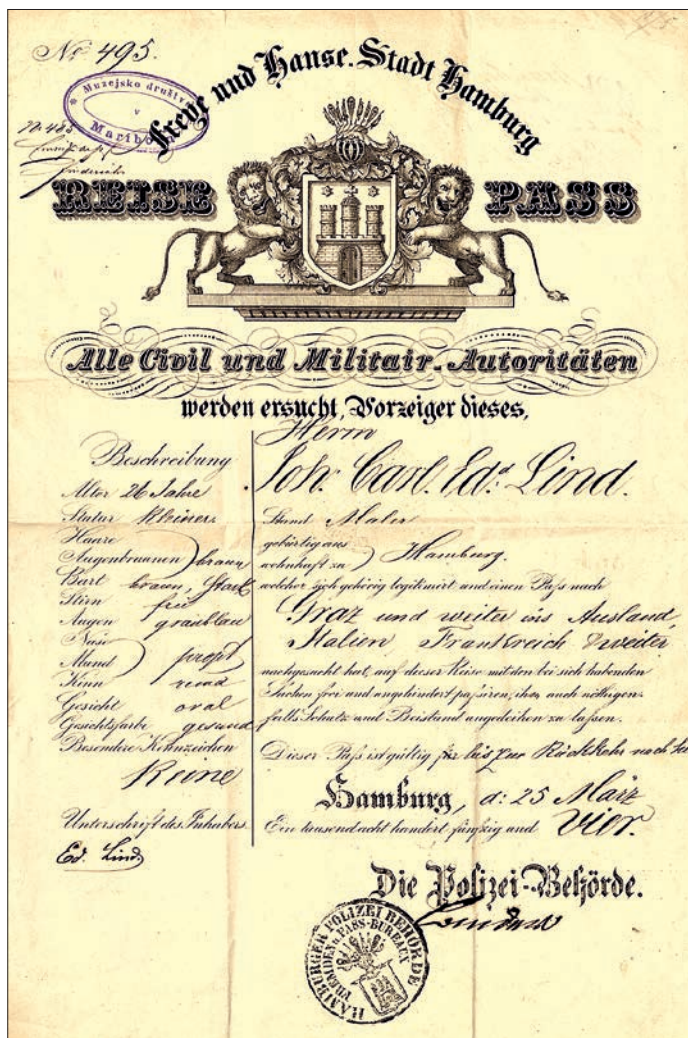 No 495.
* Muzejsko društvo
v
Maribor
No. 485
Freye und Hanse. Stadt Hamburg
REISE PASS
Alle Civil und Militair-Autoritäten
werden ersucht, Vorzeiger dieses,
Herrn
Joh. Carl. Ed.d Lind.
Beschreibung
Alter 26 Jahre
Statur Kleiner
Haare
Augenbraunen braun
Bart braun, stark
Stirn frei
Augen graublau
Nase
Mund propt
Kinn rund
Gesicht oval
Gesichtsfarbe gesund
Besondere Kennzeichen
Keine
Unterschrift des Inhabers
Ed. Lind.
Stand Maler
gebürtig aus
wohnhaft zu Hamburg.
welcher sich gehörig legitimirt und einen Pass nach
Graz und weiter ins Ausland,
Italien, Frankreich & weiter
nachgesucht hat, auf dieser Reise mit den bei sich habenden
Sachen frei und ungehindert passiren, ihm auch nöthigen-
falls Schutz und Beistand angedeihen zu lassen.
Dieser Pass ist gültig für bis zur Rückkehr nach
Hamburg, d: 25 März
Ein tausend acht hundert fünfzig und Vier.
Die Polizei-Behörde.
HAMBURGER POLIZEI BEHÖRDE
FREMDEN u. PASS-BUREAUX